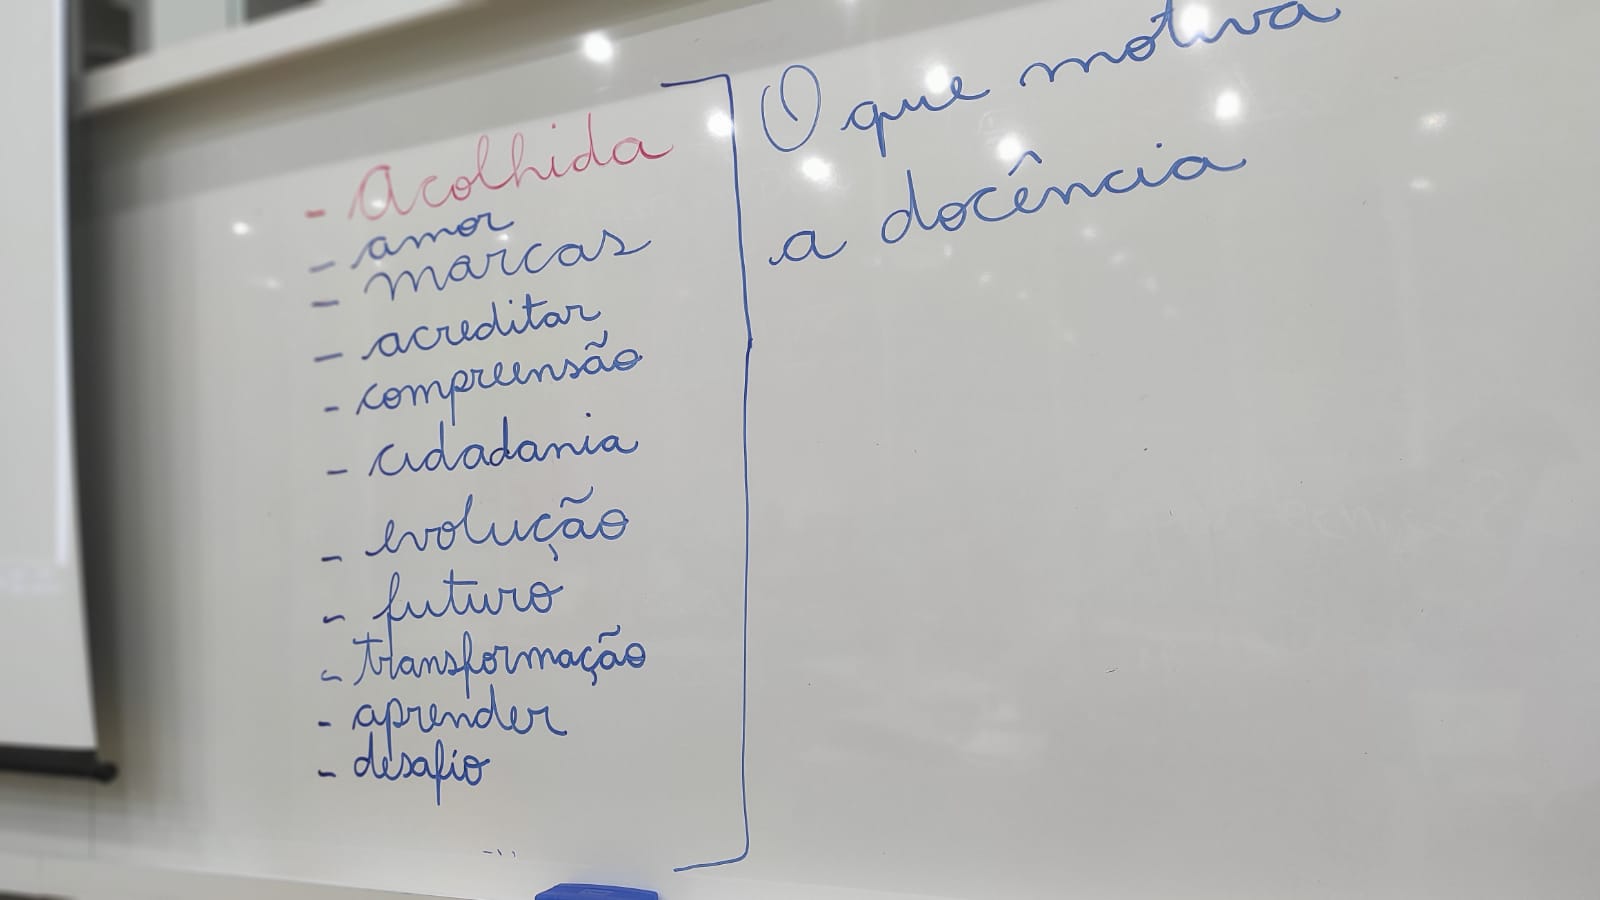 - Acolhida
- amor
- marcas
- acreditar
- compreensão
- cidadania
- evolução
- futuro
- transformação
- aprender
- desafio
...
O que motiva
a docência